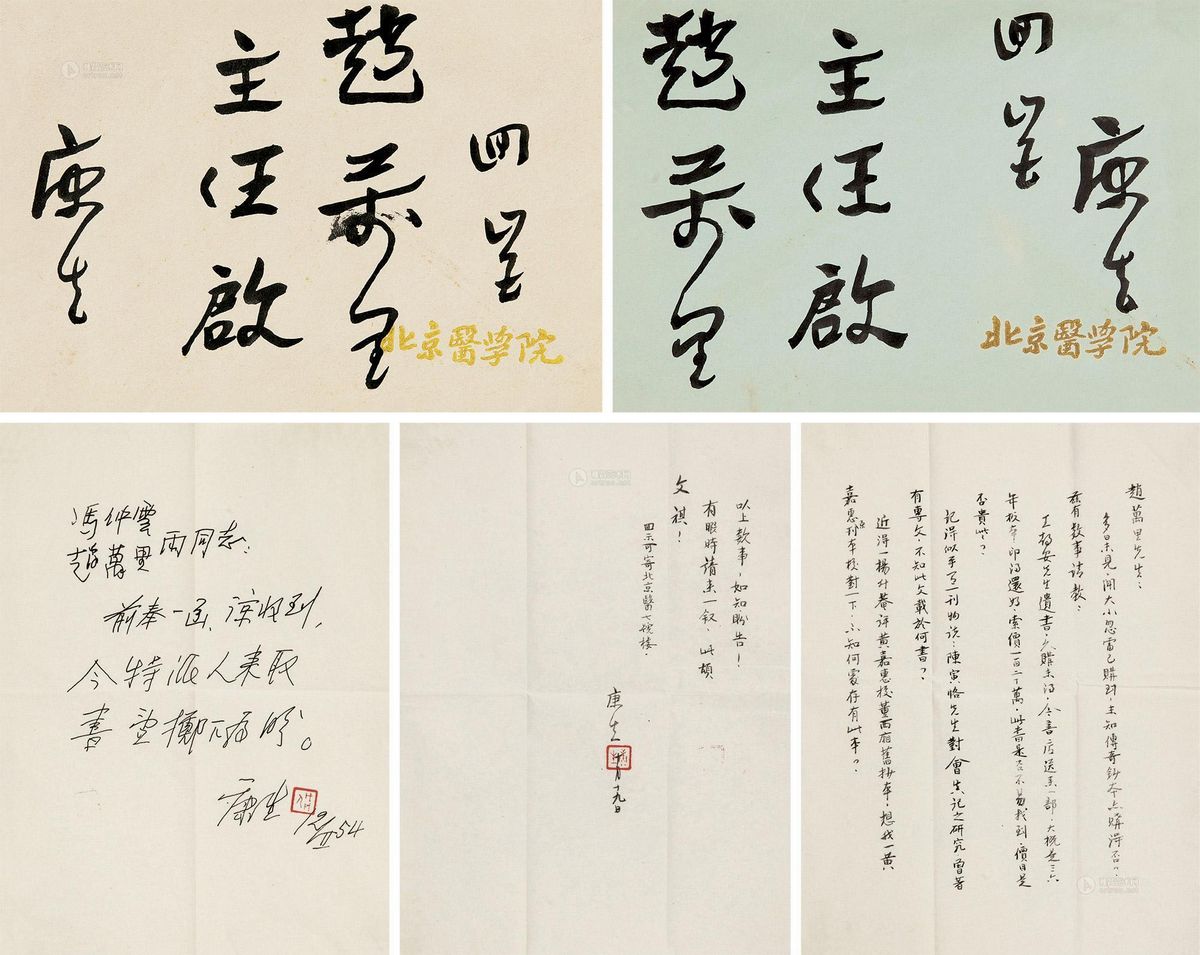 趙萬里
主任啟
康生
北京醫學院
康生
趙萬里
主任啟
北京醫學院
馮仲雲
趙萬里 兩同志:
前奉一函,諒收到,
今特派人來取
書,望擲下為盼。
康生
12/II 54
趙萬里先生:
多日未見,聞大小忽雷已購到,未知傳奇鈔本亦購得否?
茲有數事請教:
王静安先生遺書,久購未得,今書店送來一部,大概是二六
年板本,印得還好,索價一百二十萬,此書是否不易找到,價目是
否貴些?
記得似乎有一刊物說:陳寅恪先生對會真記之研究曾著
有專文,不知此文載於何書?
近得一楊升菴評黃嘉惠校董西廂舊抄本,想找一黃
嘉惠刊本校對一下,不知何處存有此本?
以上數事,如知盼告!
有暇時請來一叙,此頡
文祺!
回示可寄北京醫七號樓。
康生
十月十九日